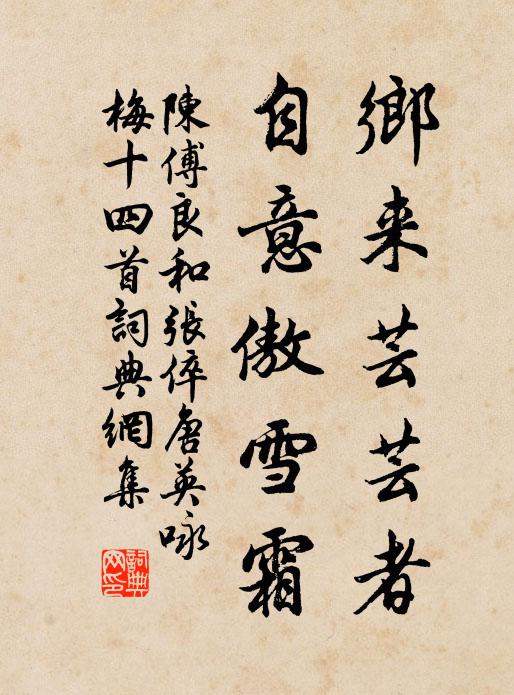 鄉来芸芸者
自意傲雪霜
陳傅良和張倅唐英咏
梅十四首詞典網集
詞典網印